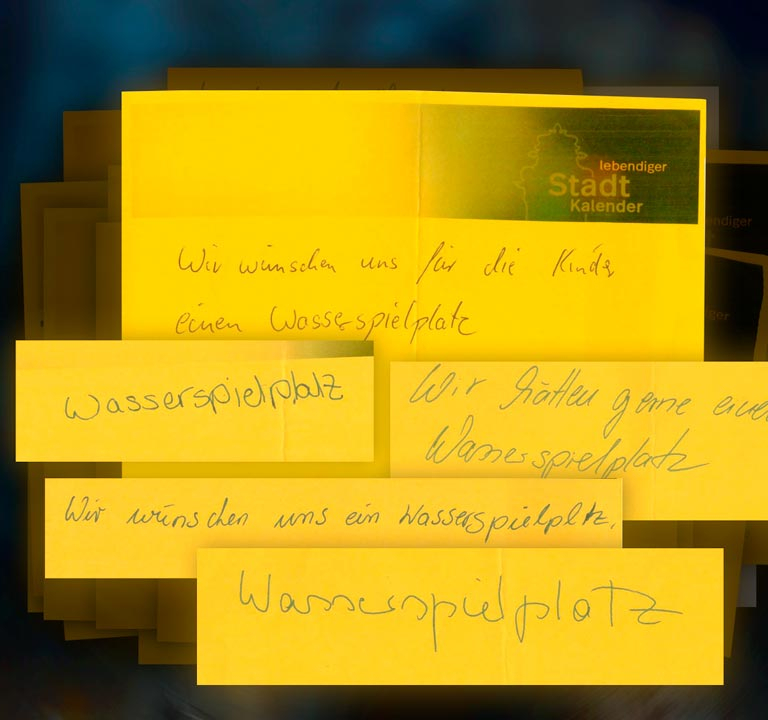 lebendiger
Stadt
Kalender
Wir wünschen uns für die Kinder
einen Wasserspielplatz
Wasserspielplatz
Wir hätten gerne einen
Wasserspielplatz
Wir wünschen uns ein Wasserspielpltz.
Wasserspielplatz
endiger